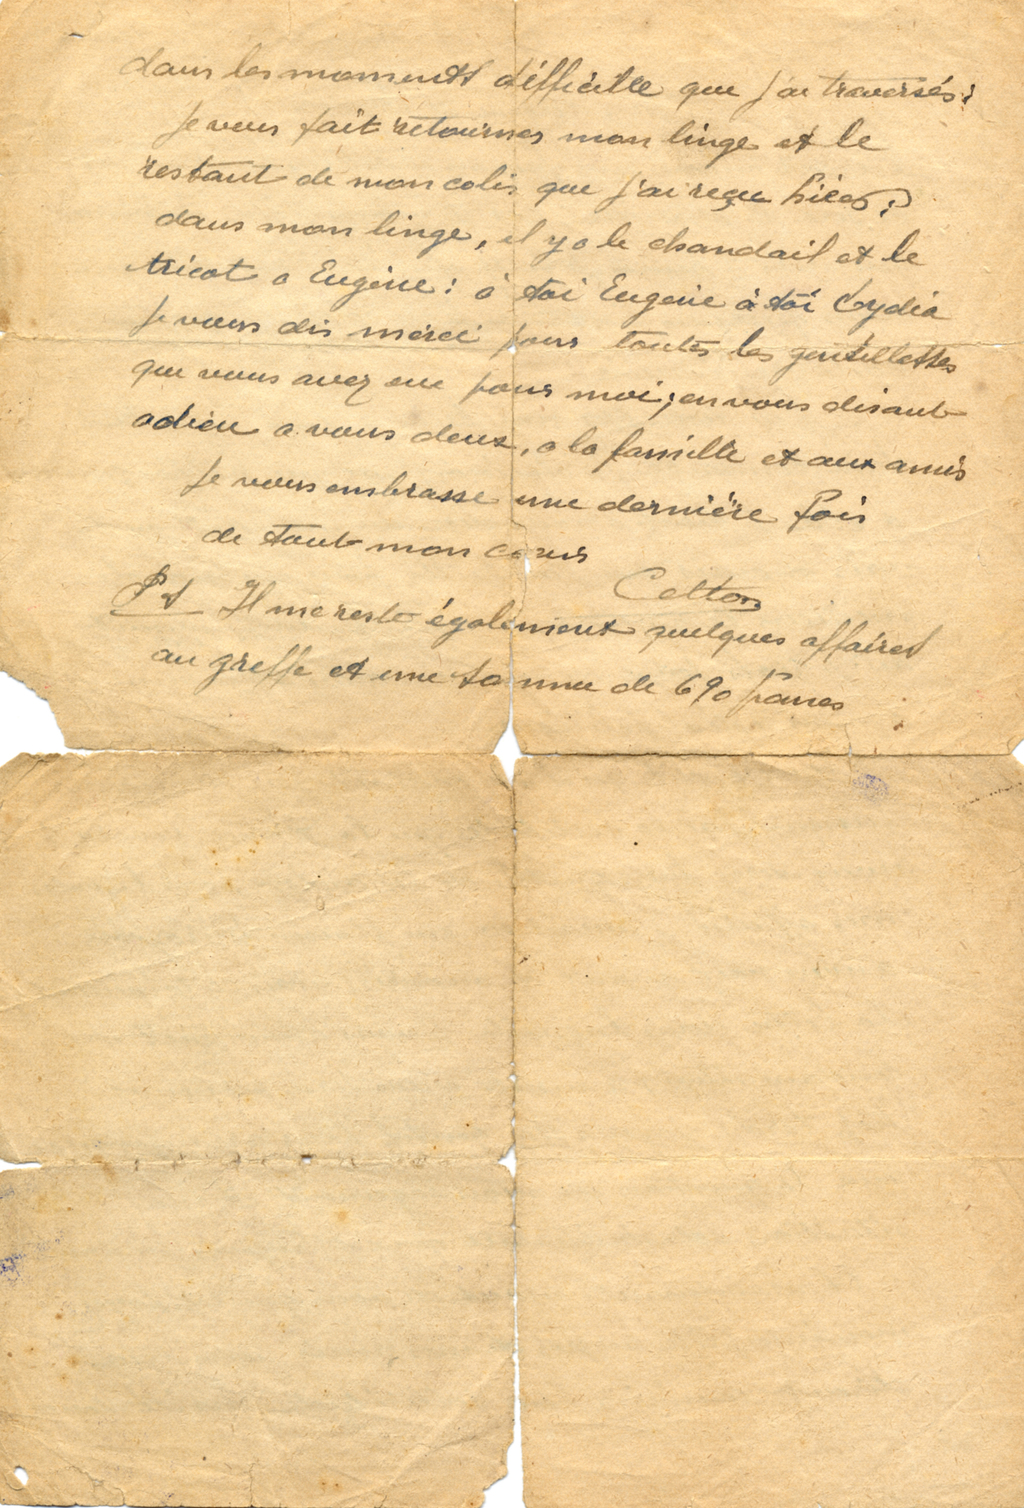 dans les moments difficille que j'ai traversés:
Je vous fait retourner mon linge et le
restant de mon colis que j'ai reçu hier;
dans mon linge, il y a le chandail et le
tricot a Eugène: à toi Eugène à toi Lydia
Je vous dis merci pour toutes les gentillesses
que vous avez eue pour moi; en vous disant
adieu a vous deux, a la famille et aux amis
Je vous embrasse une dernière fois
de tout mon cœur
Celton
Ps Il me reste également quelques affaires
au greffe et une somme de 690 francs